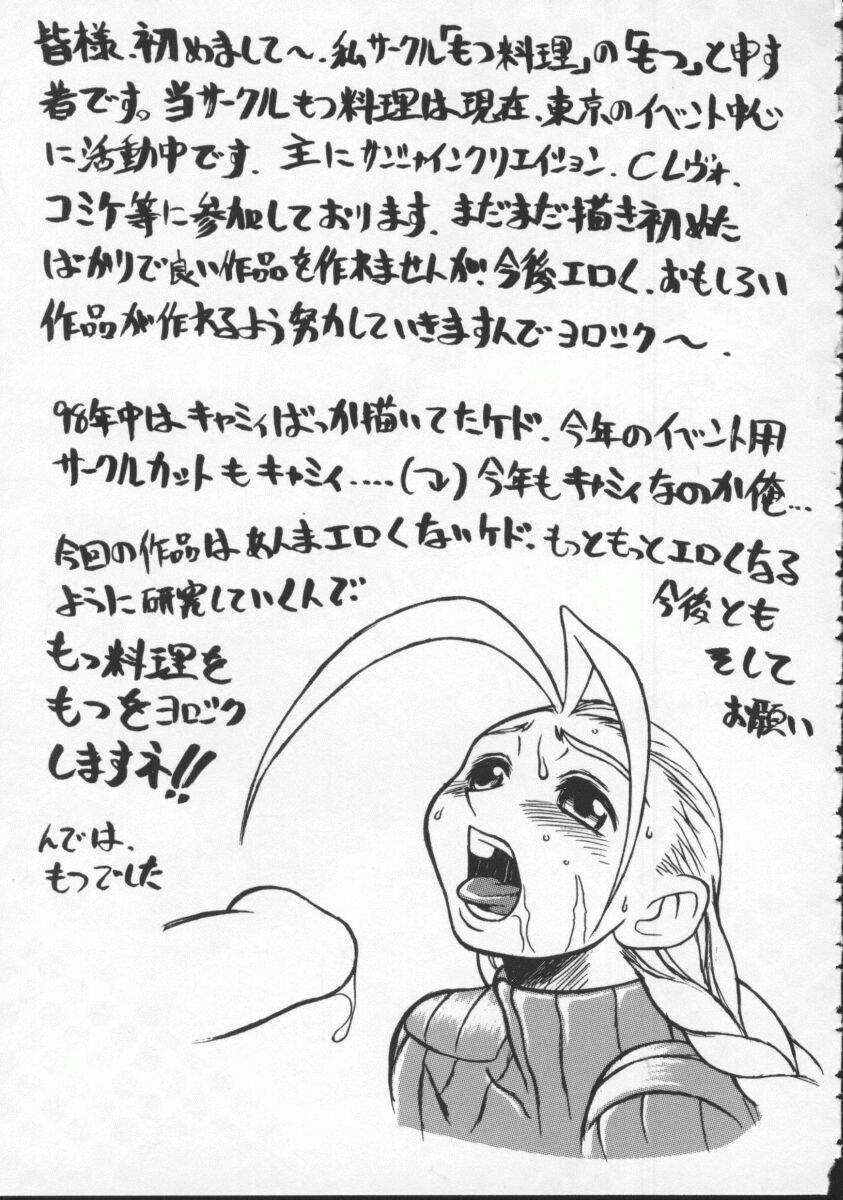 皆様、初めまして〜、私サークル「もつ料理」の「もつ」と申す
者です。当サークルもつ料理は現在、東京のイベント中心
に活動中です。主にサンシャインクリエイション、CLヴォ、
コミケ等に参加しております。まだまだ描き初めた
ばかりで良い作品を作れませんが、今後エロく、おもしろい
作品が作れるよう努力していきますんでヨロシック〜。
98年中はキャミィばっか描いてたケド、今年のイベント用
サークルカットもキャミィ....今年もキャミィなのか俺...
今回の作品はあんまエロくないケド、もっともっとエロくなる
ように研究していくんで
今後とも
もつ料理を
そして
もつをヨロシック
お願い
しますネ!!
んでは、
もつでした